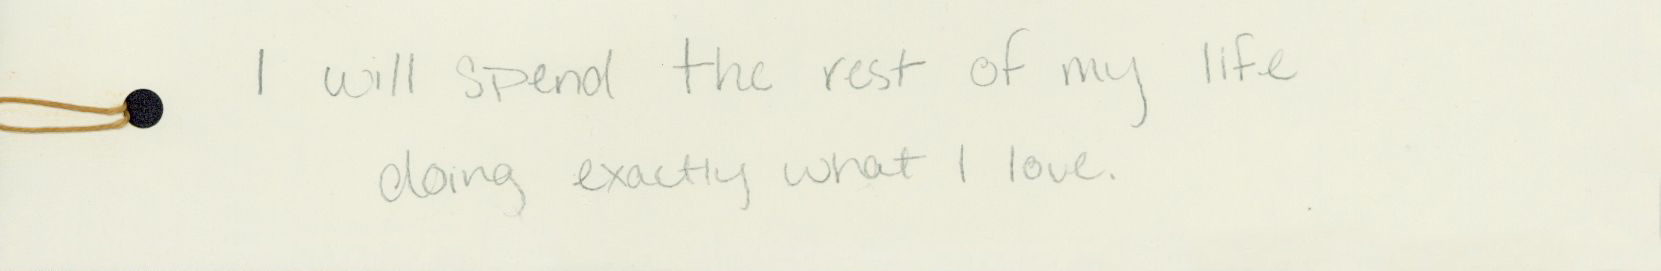 I will spend the rest of my life
doing exactly what I love.